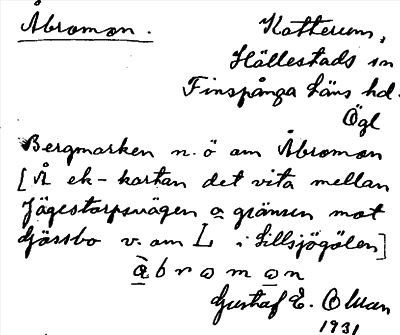 Åbromon.
Katterum,
Hällestads sn
Finspånga läns hd.
Ögl
Bergmarken n. ö om Åbromon
[Å ek-kartan det vita mellan
Jägestorpsvägen o gränsen mot
Gässbo v. om L i Sillsjögölen]
åbromon
Gustaf E. Olman
1931